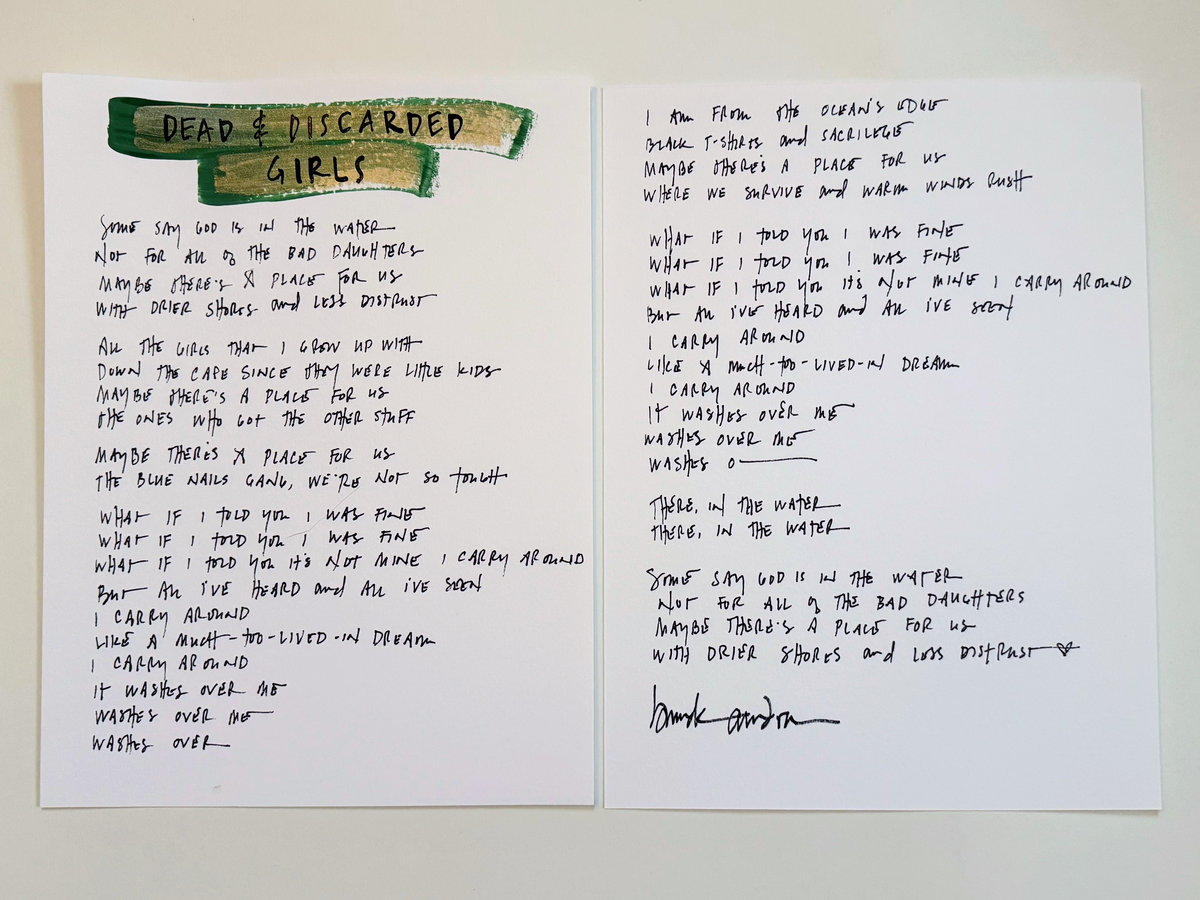 DEAD & DISCARDED
GIRLS
SOME SAY GOD IS IN THE WATER
NOT FOR ALL of THE BAD DAUGHTERS
MAYBE THERE'S A PLACE FOR US
WITH DRIER SHORES and LESS DISTRUST
ALL THE GIRLS THAT I GREW UP WITH
DOWN THE CAPE SINCE THEY WERE LITTLE KIDS
MAYBE THERE'S A PLACE FOR US
THE ONES WHO GOT THE OTHER STUFF
MAYBE THERE'S A PLACE FOR US
THE BLUE NAILS GANG, WE'RE NOT SO TOUGH
WHAT IF I TOLD YOU I WAS FINE
WHAT IF I TOLD YOU I WAS FINE
WHAT IF I TOLD YOU IT'S NOT MINE I CARRY AROUND
BUT ALL I'VE HEARD and ALL I'VE SEEN
I CARRY AROUND
LIKE A MUCH-TOO-LIVED-IN DREAM
I CARRY AROUND
IT WASHES OVER ME
WASHES OVER ME
WASHES OVER
I AM FROM THE OCEAN'S EDGE
BLACK T-SHIRTS and SACRILEGE
MAYBE THERE'S A PLACE FOR US
WHERE WE SURVIVE and WARM WINDS RUSH
WHAT IF I TOLD YOU I WAS FINE
WHAT IF I TOLD YOU I WAS FINE
WHAT IF I TOLD YOU IT'S NOT MINE I CARRY AROUND
BUT ALL I'VE HEARD and ALL I'VE SEEN
I CARRY AROUND
LIKE A MUCH-TOO-LIVED-IN DREAM
I CARRY AROUND
IT WASHES OVER ME
WASHES OVER ME
WASHES O——
THERE, IN THE WATER
THERE, IN THE WATER
SOME SAY GOD IS IN THE WATER
NOT FOR ALL of THE BAD DAUGHTERS
MAYBE THERE'S A PLACE FOR US
WITH DRIER SHORES and LESS DISTRUST